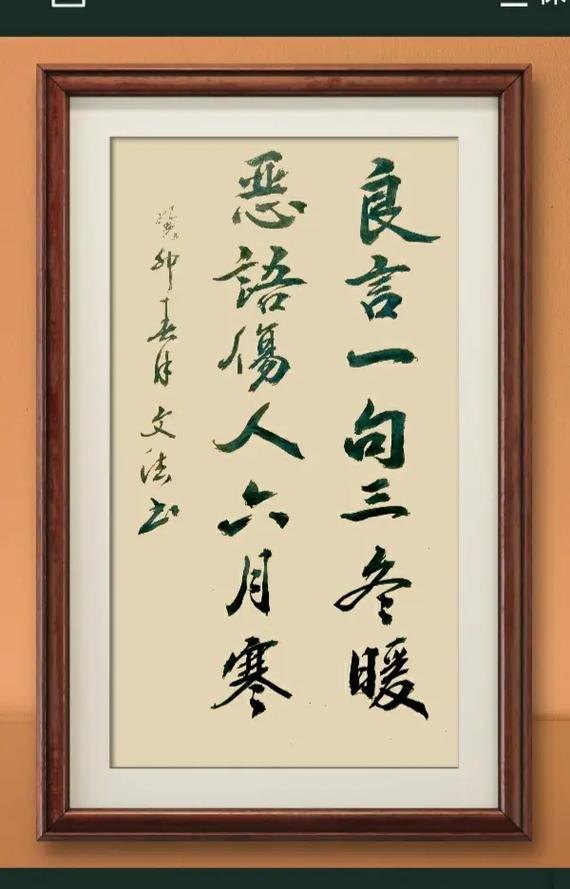 良言一句三冬暖
惡語傷人六月寒
癸卯春月文法书